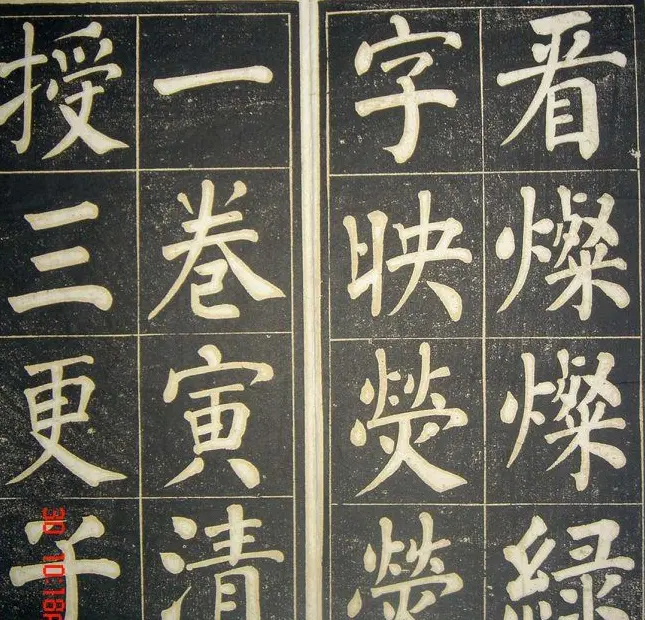 看燦燦緑
字映熒熒
一卷寅清
授三更
30 10:18